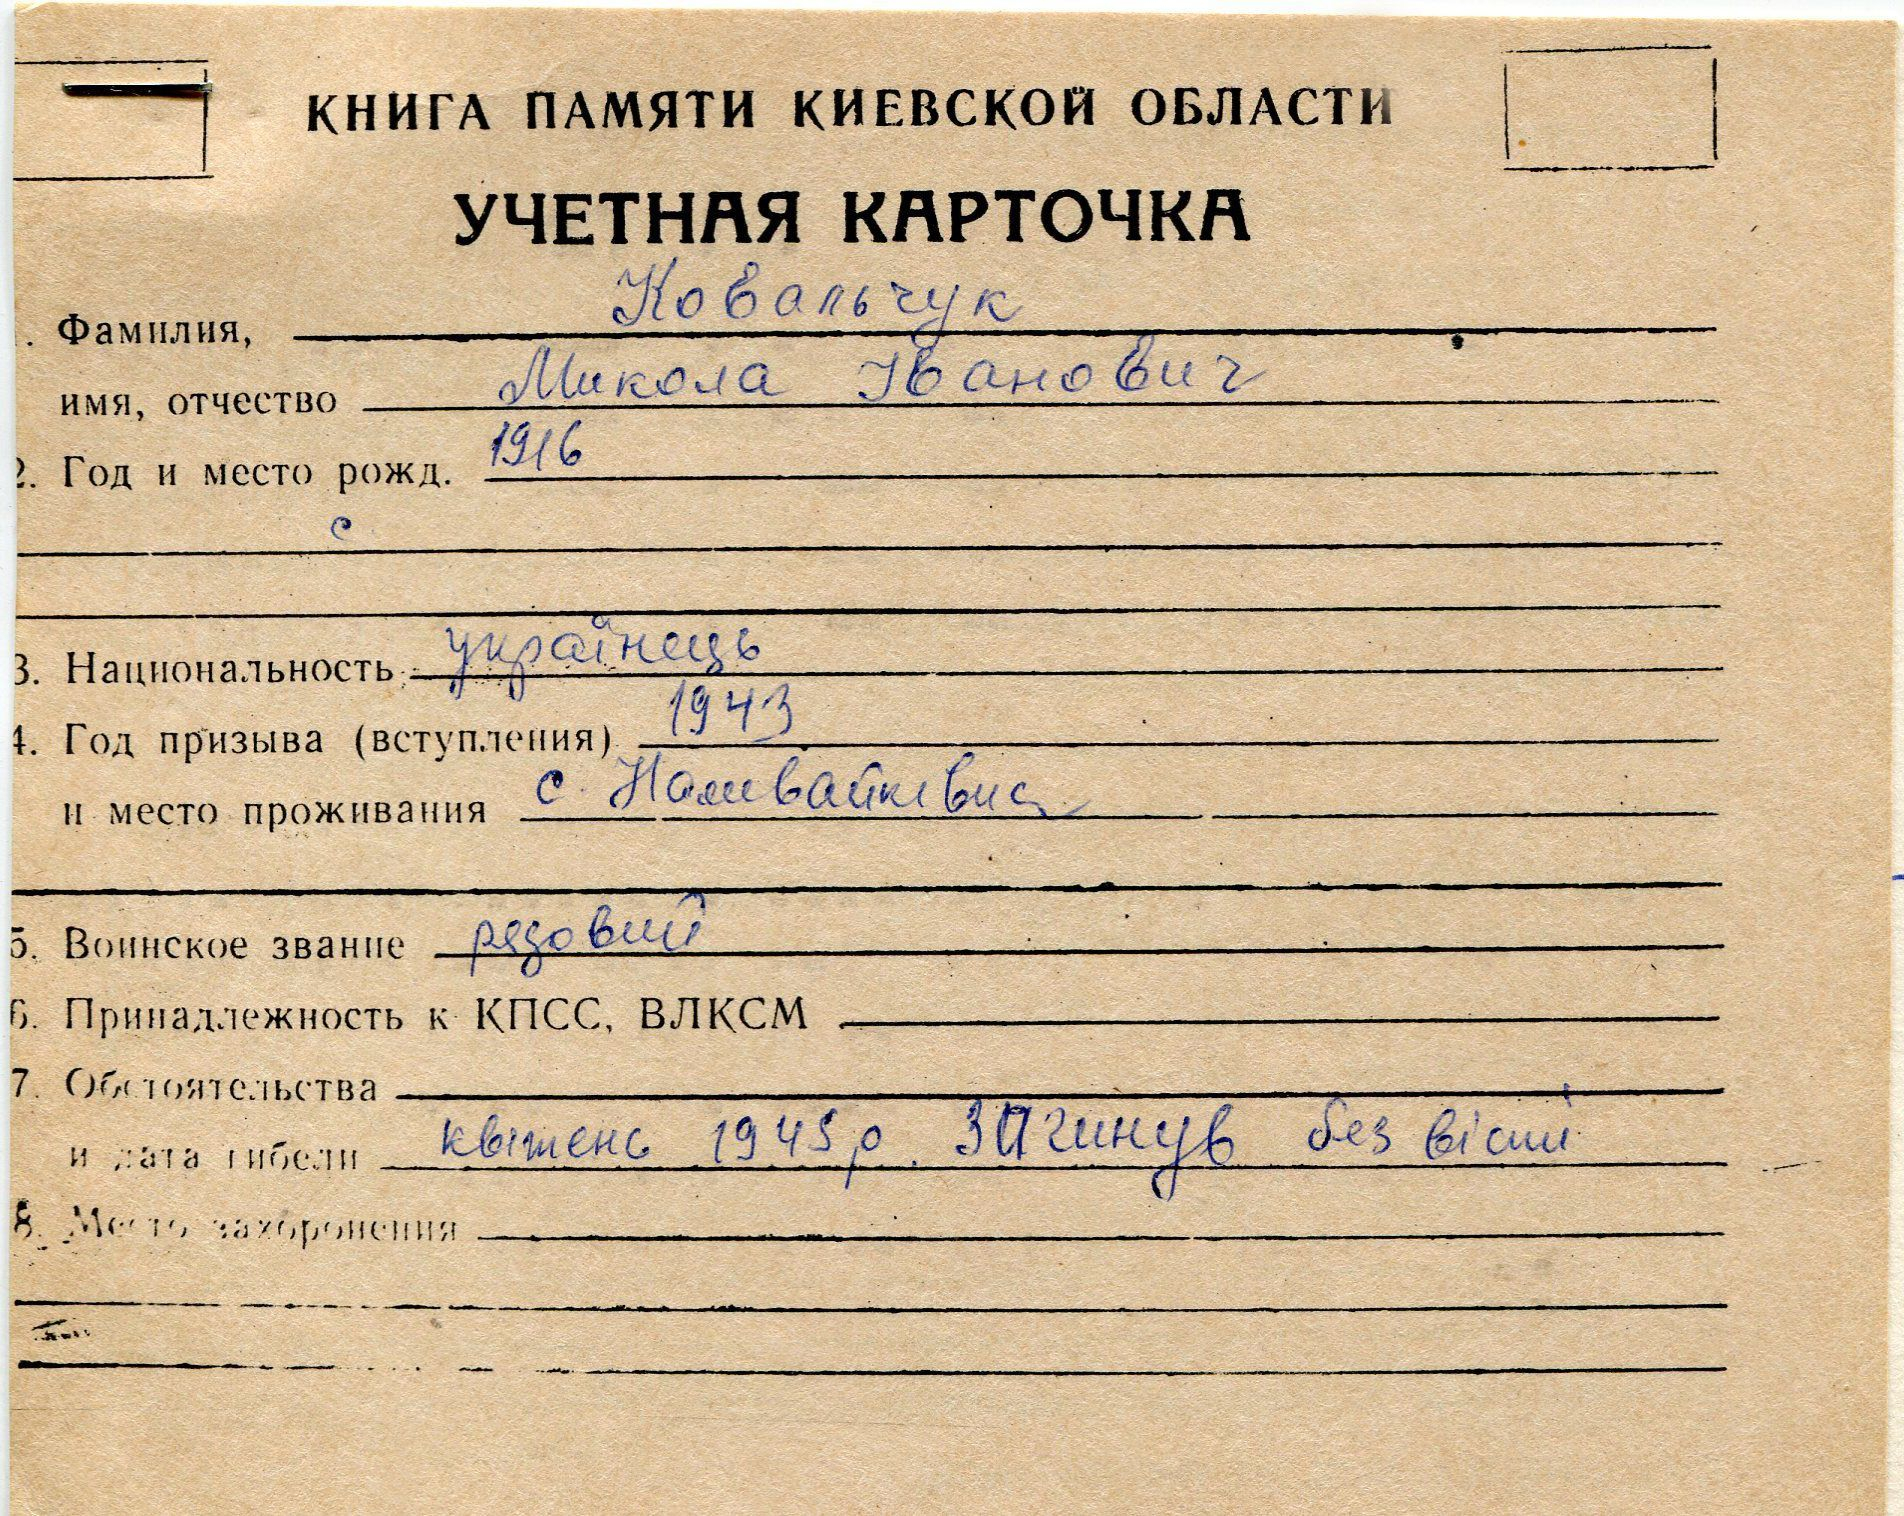 КНИГА ПАМЯТИ КИЕВСКОЙ ОБЛАСТИ
УЧЕТНАЯ КАРТОЧКА
Ковальчук
1. Фамилия,
имя, отчество Микола Іванович
2. Год и место рожд. 1916
с
3. Национальность українець
4. Год призыва (вступления) 1943
и место проживания с.
5. Воинское звание рядовий
6. Принадлежность к КПСС, ВЛКСМ
7. Обстоятельства
и дата гибели квітень 1945 р. загинув без вісті
8. Место захоронения